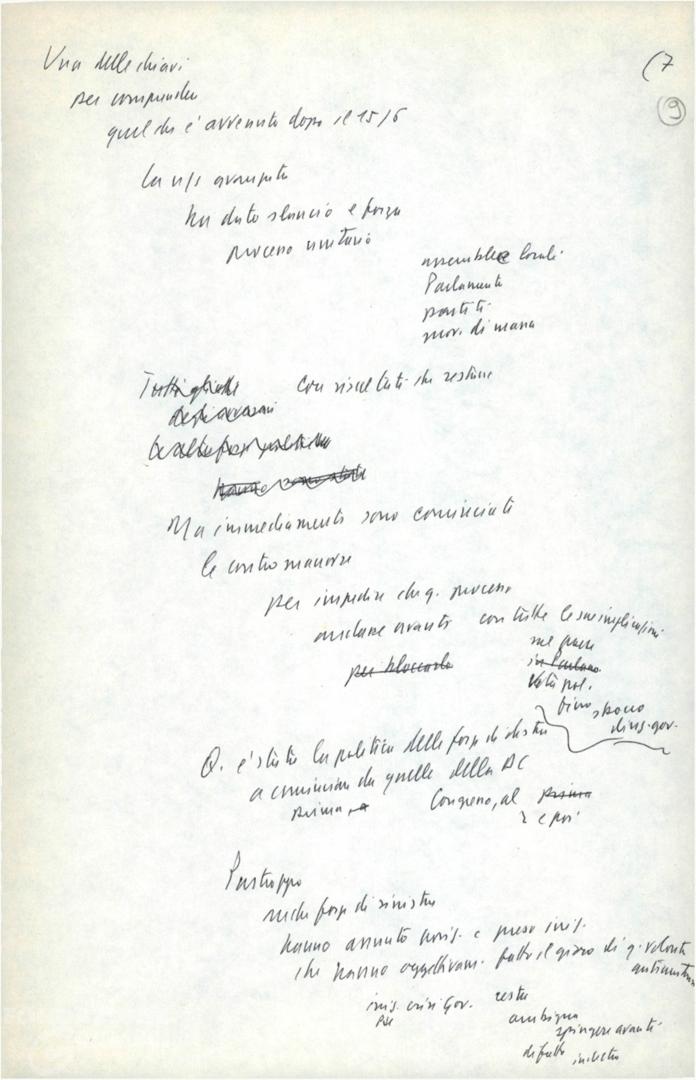 (7
9
Una delle chiavi
per comprendere
quel che è avvenuto dopo il 15/6
La ns avanzata
ha dato slancio e forza
processo unitario
assemblee locali
Parlamento
partiti
mov. di massa
Tutti gli
con risultati che restano
Ma immediamente sono cominciate
le contromanovre
per impedire che q. processo
andasse avanti con tutte le sue implicazioni
nel paese
per bloccarlo
in Parlam
vita pol.
fino, sbocco
direz. gov.
Q. è stata la politica delle forze di destra
a cominciare da quelle della DC
prima, al Congresso, al prima
e poi
Purtroppo
anche forze di sinistra
hanno assunto posiz. e preso iniz.
che hanno oggettivam. fatto il gioco di q. volontà
antiunitaria
iniz. crisi gov. resta
PSI
ambigua
spingere avanti
di fatto indietro